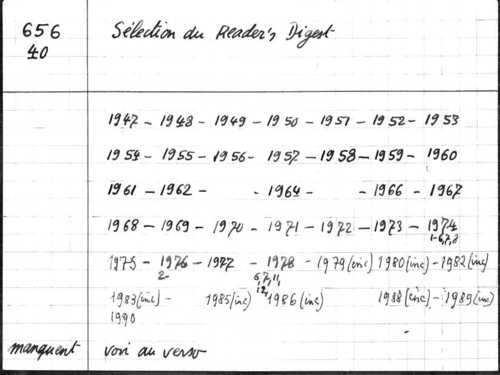 656
40
Sélection du Reader's Digest
1947 - 1948 - 1949 - 1950 - 1951 - 1952 - 1953
1954 - 1955 - 1956 - 1957 - 1958 - 1959 - 1960
1961 - 1962 - - 1964 - - 1966 - 1967
1968 - 1969 - 1970 - 1971 - 1972 - 1973 - 1974
1-6,7,8
1975 - 1976 - 1977 - 1978 - 1979 (inc) 1980 (inc) - 1982 (inc)
2- 6,7,11,
12,
1983 (inc) - 1985 (inc) 1986 (inc) 1988 (inc) - 1989 (inc)
1990
manquent voir au verso